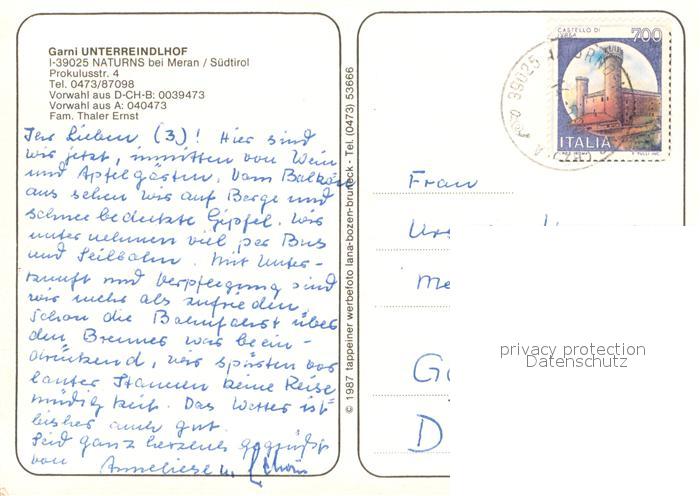 Garni UNTERREINDLHOF
I-39025 NATURNS bei Meran / Südtirol
Prokulusstr. 4
Tel. 0473/87098
Vorwahl aus D-CH-B: 0039473
Vorwahl aus A: 040473
Fam. Thaler Ernst
Ihr Lieben (3)! Hier sind
wir jetzt, inmitten von Wein
und Apfelgärten. Vom Balkon
aus sehen wir auf Berge und
schneebedeckte Gipfel. Wir
unternehmen viel per Bus
und Seilbahn. Mit Unter-
kunft und Verpflegung sind
wir mehr als zufrieden.
Schon die Bahnfahrt über
den Brenner war beein-
drückend, wir spürten vor
lauter Staunen keine Reise
müdigkeit. Das Wetter ist
bisher auch gut.
Seid ganz herzens gegrüßt
von Anneliese u.
© 1987 tappeiner werbefoto lana-bozen-bruneck - Tel. (0473) 53666
CASTELLO DI
IVREA
700
ITALIA
39025
Frau
D
privacy protection
Datenschutz